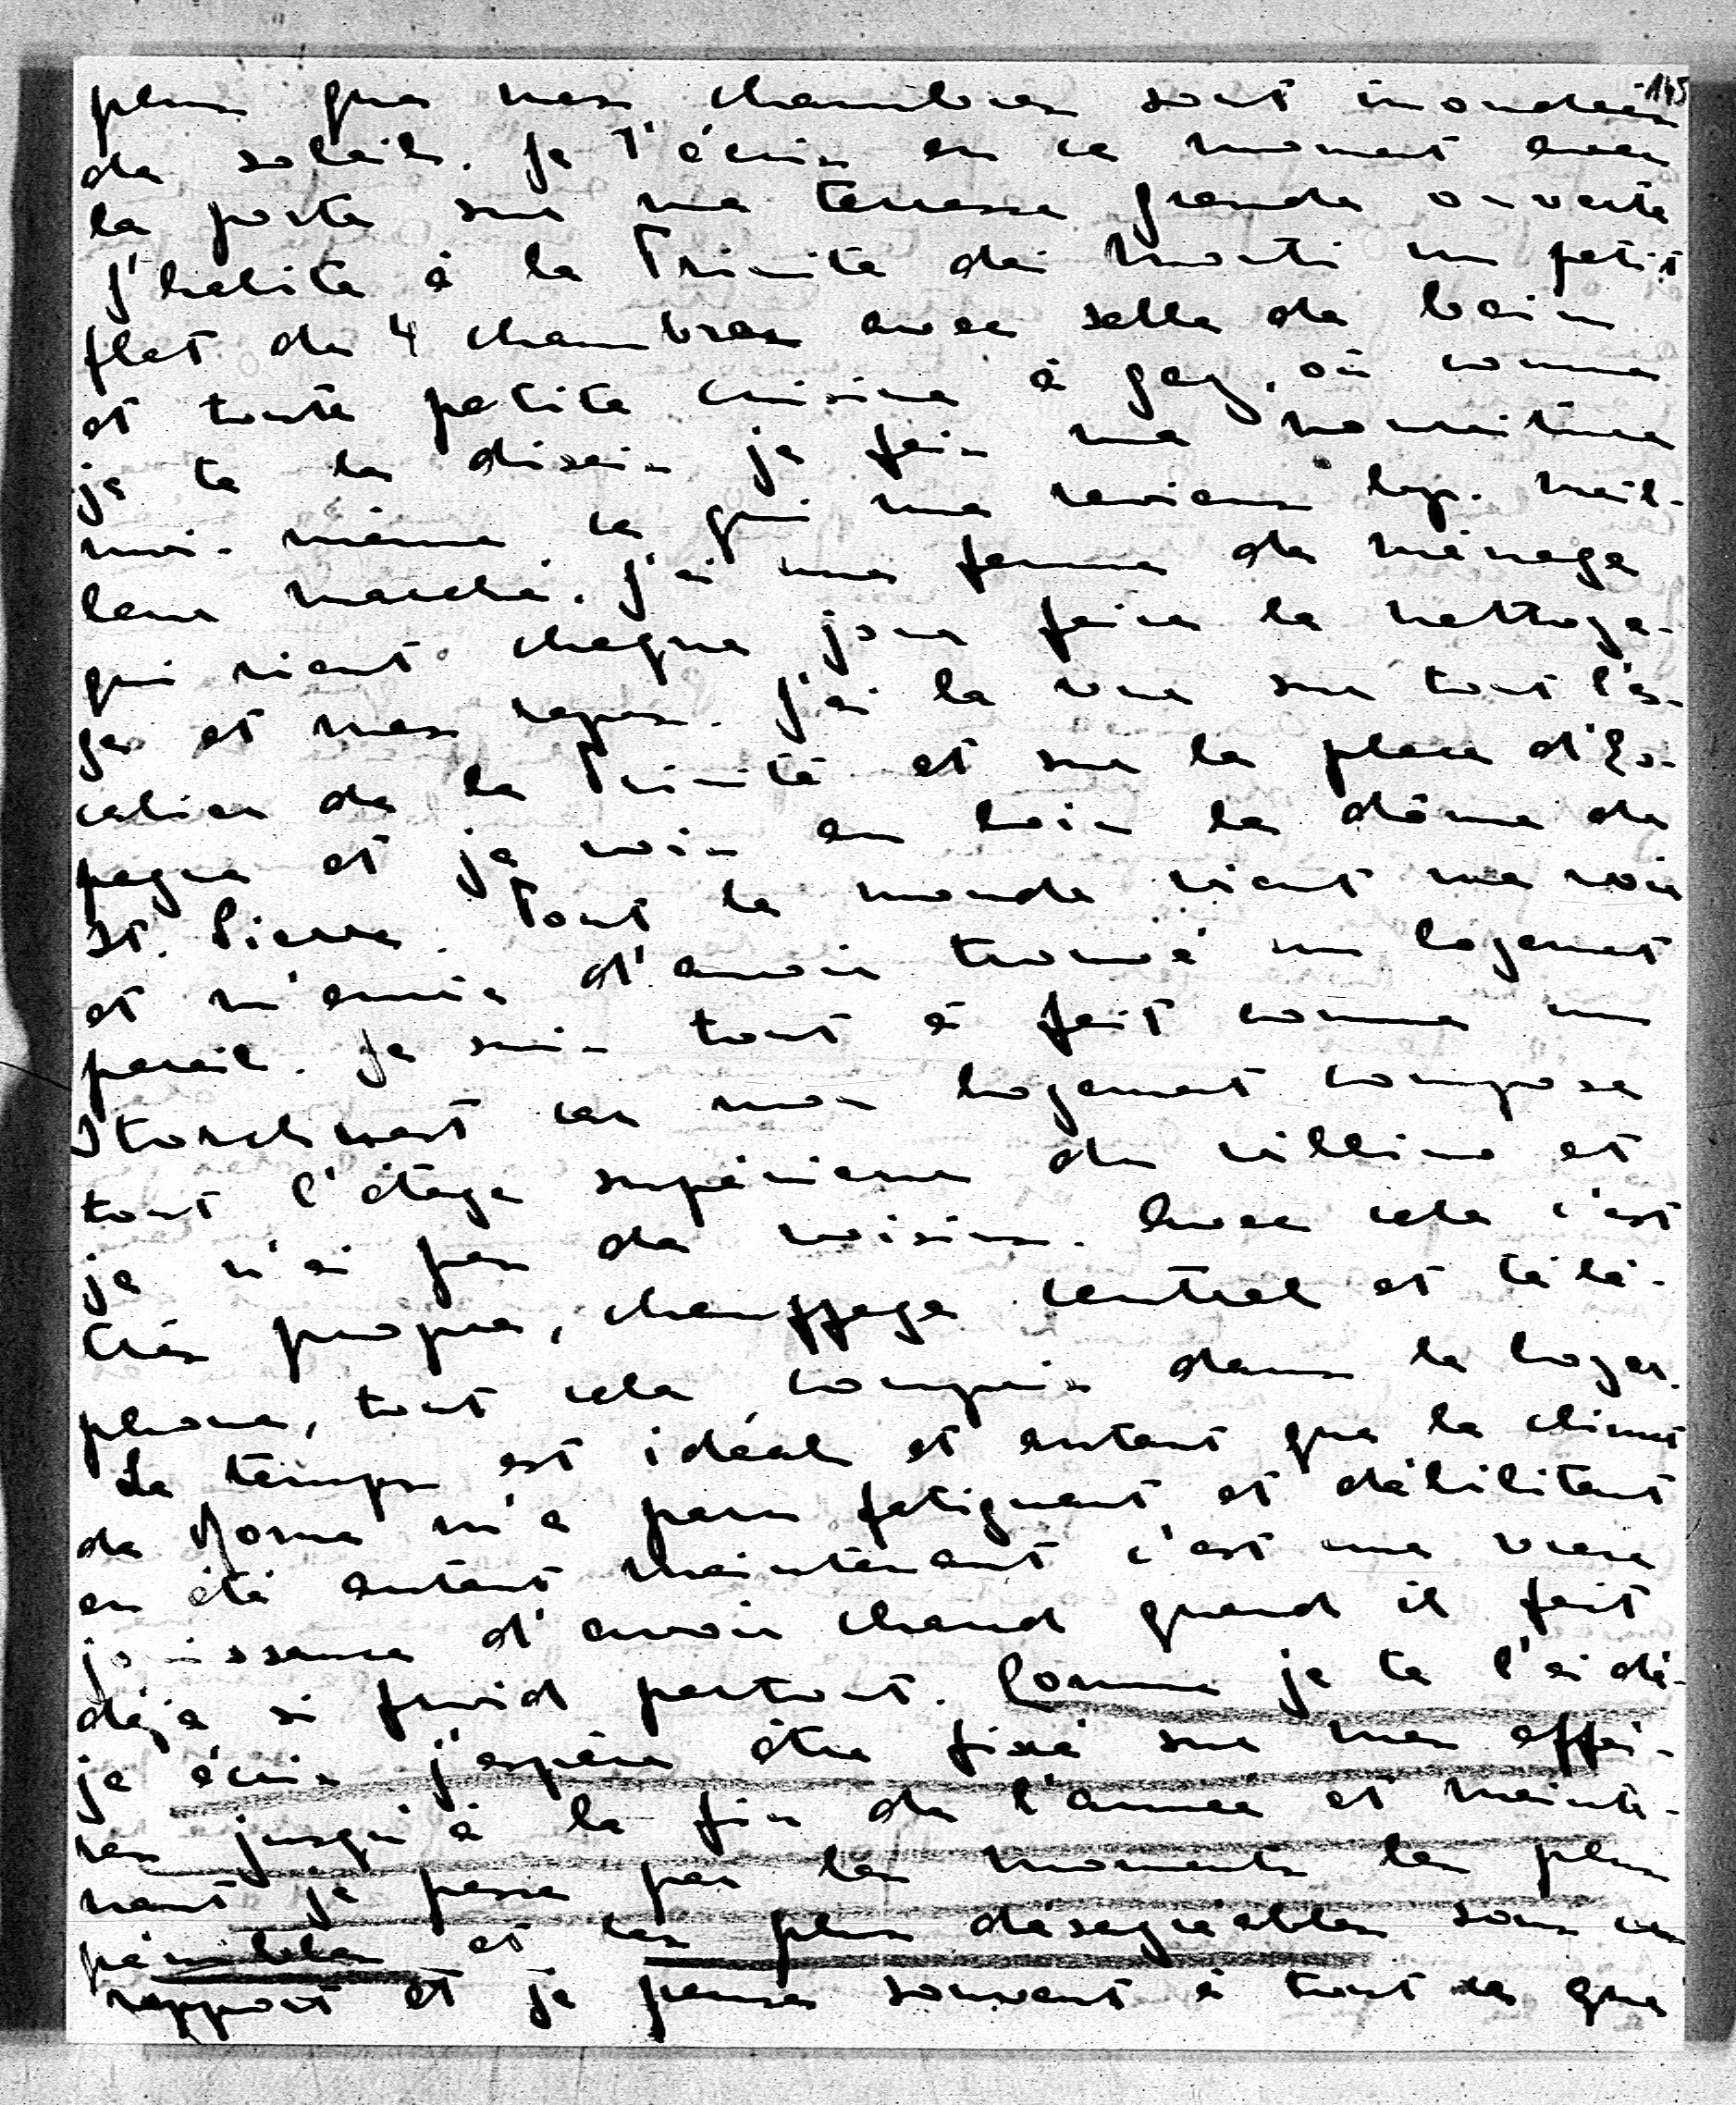 145
plus que mes chambres sont inondées
de soleil. Je t'écris en ce moment avec
la porte sur ma terrasse grande ouverte
J'habite à la Trinità dei Monti un petit
flat de 4 chambres avec salle de bain
et toute petite cuisine à gaz, où comme
je te le disais je fais ma nourriture
moi-même ce qui me reviens bcp. meil-
leur marché. J'ai une femme de ménage
qui vient chaque jour faire le nettoya-
ge et mes repas. J'ai la vue sur tout l'es-
calier de la Trinité et sur la place d'Es-
pagne et je vois au loin le dôme de
St. Pierre. Tout le monde vient me voir
et m'envie d'avoir trouvé un logement
pareil. Je suis tout à fait comme un
Storchnest car mon logement compose
tout l'étage supérieur du villino et
je n'ai pas de voisins. Avec cela c'est
très propre, chauffage central et télé-
phone, tout cela compris dans le loyer.
Le temps est idéal et autant que le climat
de Rome m'a paru fatiguant et débilitant
en été autant maintenant c'est une vraie
jouissance d'avoir chaud quand il fait
déjà si froid partout. Comme je te l'ai dé-
jà écris j'espère être fixé sur mes affai-
res jusqu'à la fin de l'année et mainte-
nant je passe par les moments les plus
pénibles et les plus désagréables sous ce
rapport et je pense souvent à tout ce que